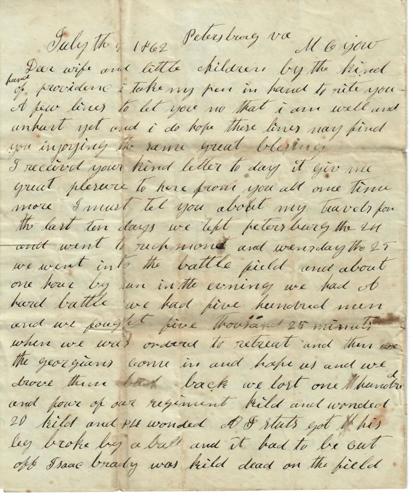 Petersburg va
July the 1862
Dear wife and little children by the kind
hand
of providence i take my pen in hand to rite you
A few lines to let you no that i am well and
unhurt yet and i do hope these lines may find
you injoying the same great blessing
I received your kind letter to day it give me
great plesure to here from you all one time
more I must tel you about my travels for
the last ten days we left petersburg the 24
and went to richmond and wensday the 25
we went into the battle field and about
one hour by sun in the evning we had A
hard battle we had five hundred men
and we fought five thousand 25 minuts
when we was ordered to retreat and then
the georgians come in and hope us and we
drove them back we lost one hundred
and fower of our regiment kild and wonded
20 kild and 84 wonded A J his
leg broke by a ball and it had to be cut
off Isaac brady was kild dead on the field